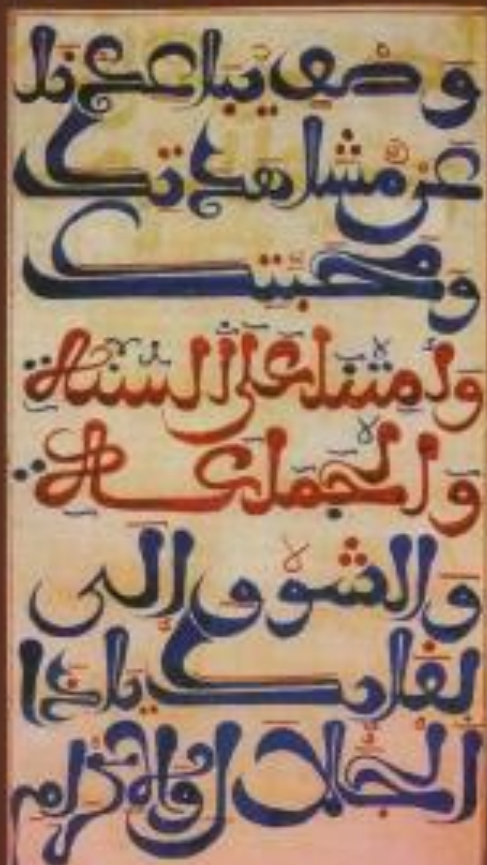 وصف يباعدنا
عن مشاهدتك
ومحبتك
وأمتنا على السنة
والجماعة
والشوق إلى
لقائك ياذا
الجلال والإكرام